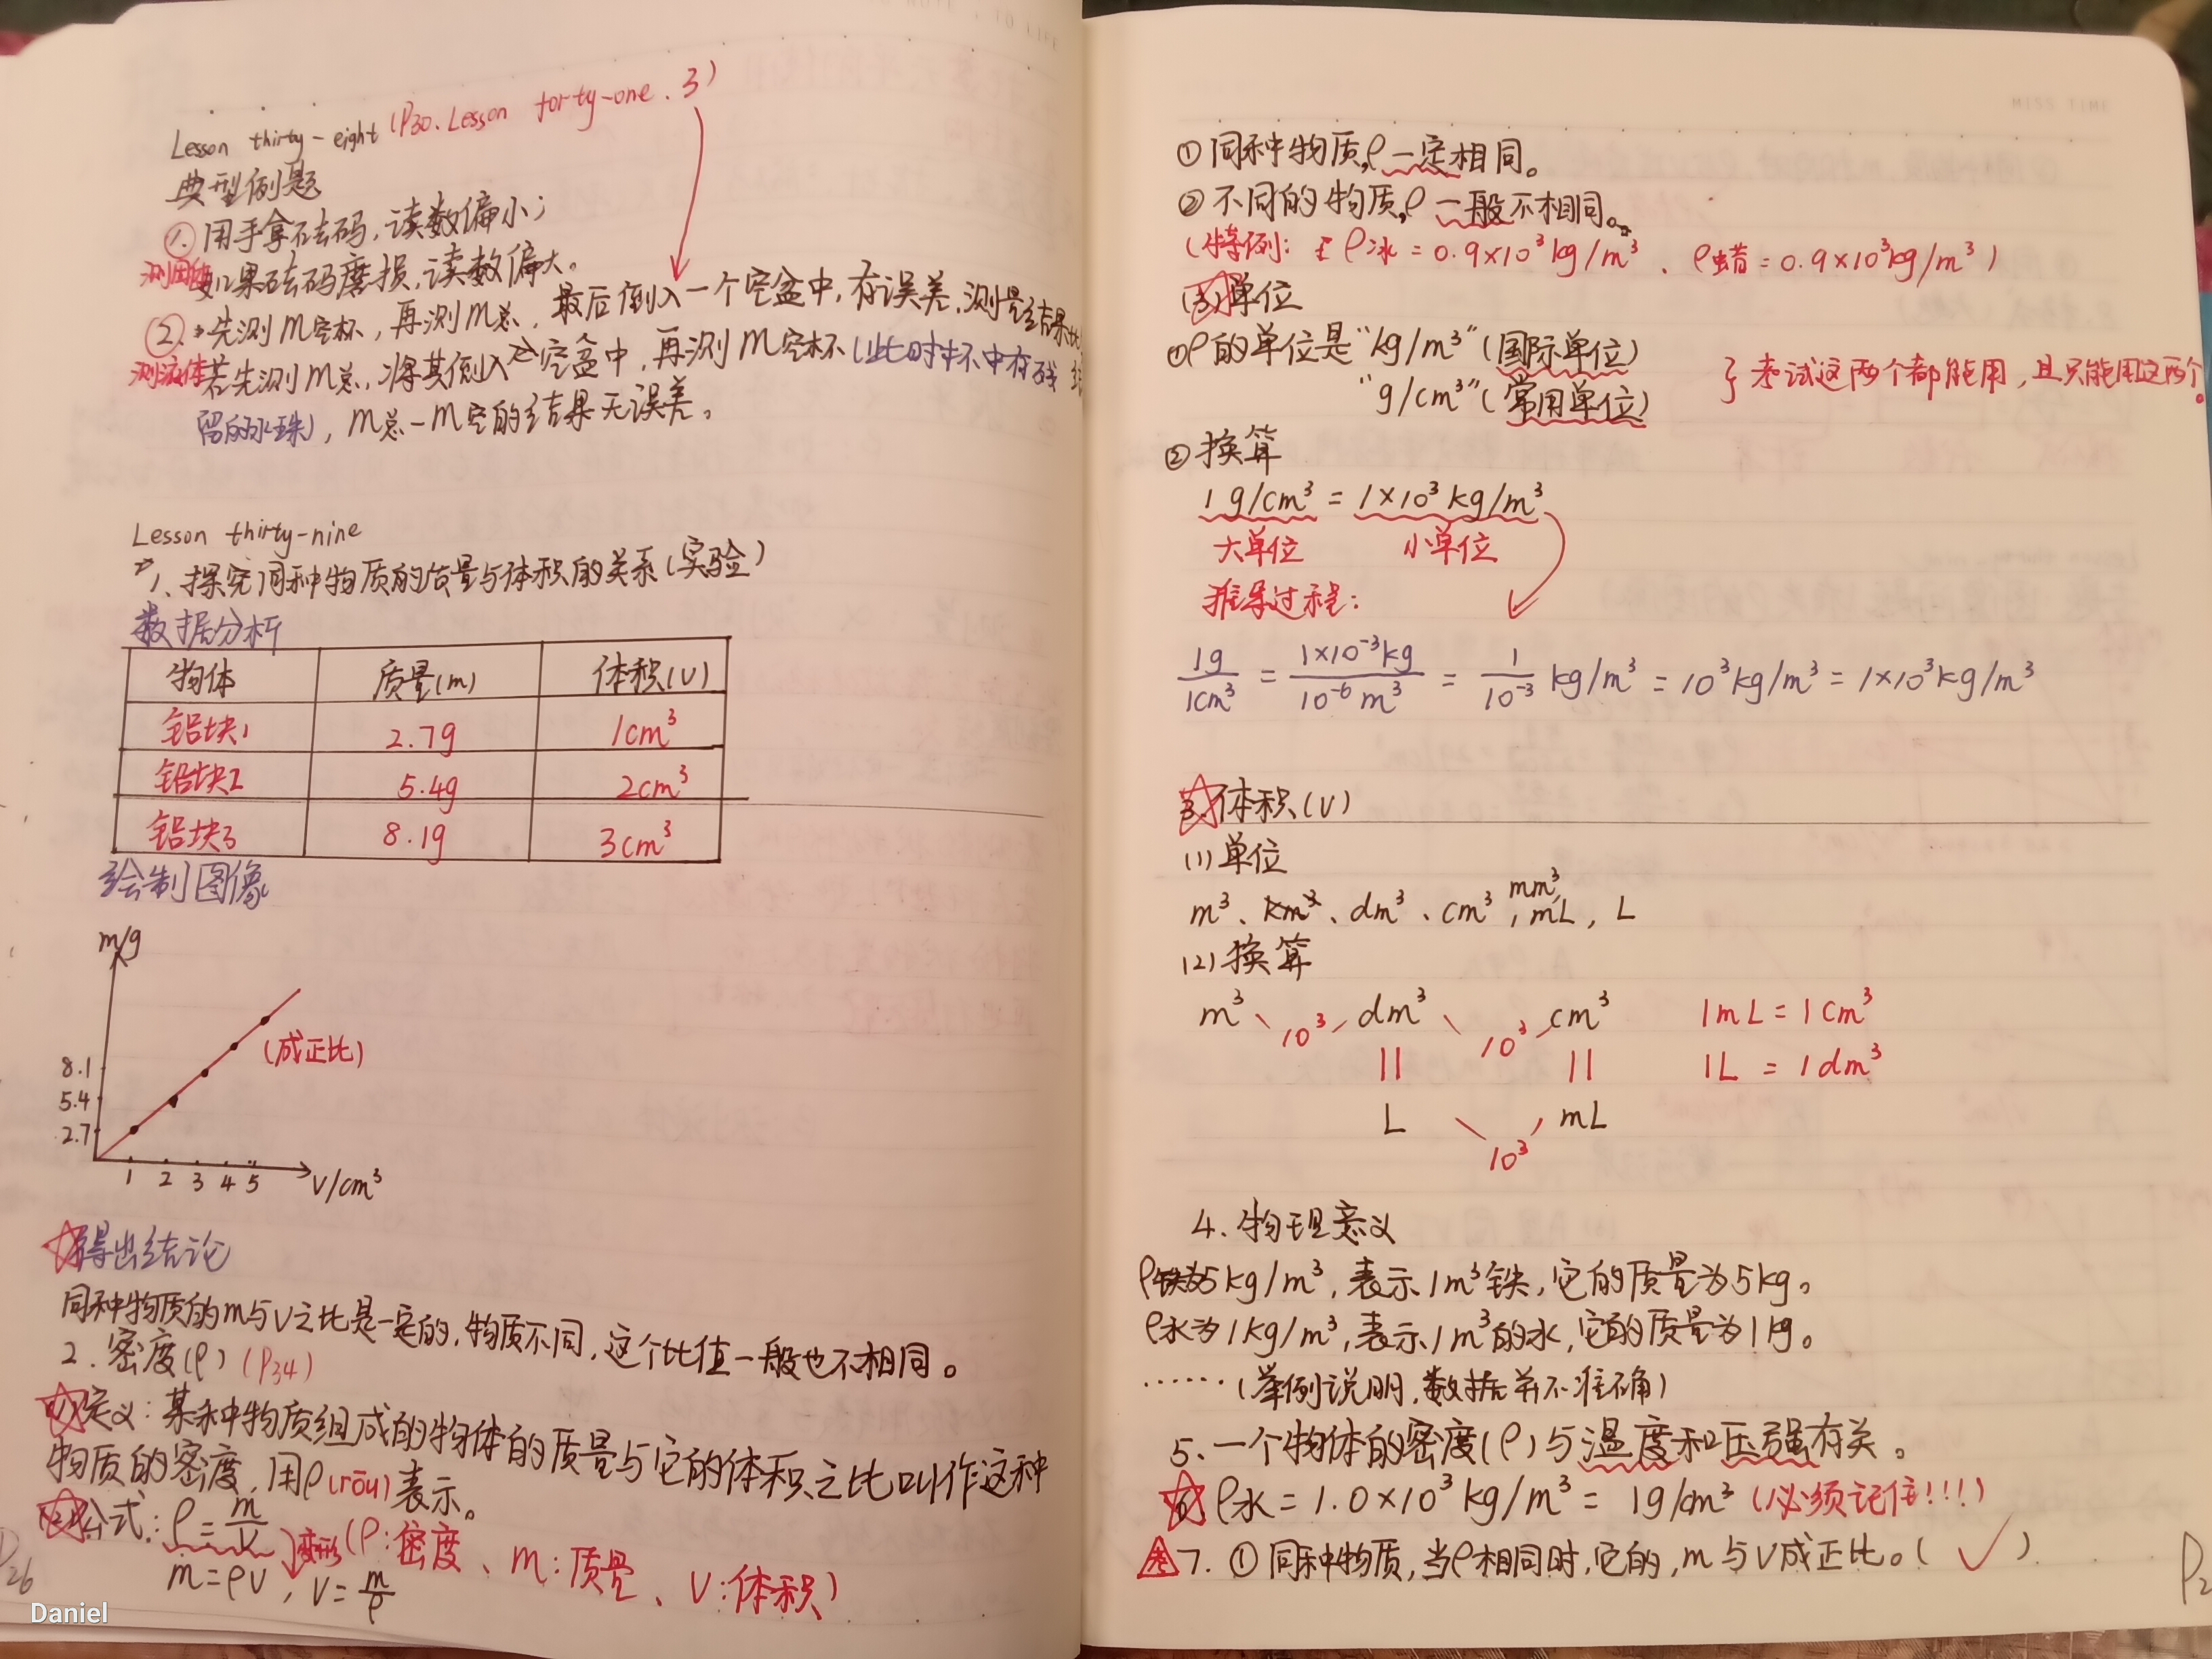 Lesson thirty-eight (P30. Lesson forty-one. 3)
典型例题
①. 用手拿砝码，读数偏小；
测固体 如果砝码磨损，读数偏大。
②. 先测m空杯，再测m总，最后倒入一个空盆中，有误差，测量结果比
测液体 若先测m总，将其倒入空盆中，再测m空杯(此时中不中有残
留的水珠)，m总-m空的结果无误差。
Lesson thirty-nine
1、探究同种物质的质量与体积的关系(实验)
数据分析
物体 质量(m) 体积(V)
铝块1 2.7g 1cm³
铝块2 5.4g 2cm³
铝块3 8.1g 3cm³
绘制图像
m/g
(成正比)
8.1
5.4
2.7
1 2 3 4 5 V/cm³
得出结论
同种物质的m与V之比是一定的，物质不同，这个比值一般也不相同。
2. 密度(ρ) (P34)
定义：某种物质组成的物体的质量与它的体积之比叫作这种
物质的密度，用ρ(rōu)表示。
公式：ρ=m/V 变形(ρ:密度、m:质量、V:体积)
m=ρV，V=m/ρ
P26
Daniel
①同种物质，ρ一定相同。
②不同的物质，ρ一般不相同。
(特例：ρ冰=0.9×10³kg/m³、ρ蜡=0.9×10³kg/m³)
(3)单位
①ρ的单位是"kg/m³"(国际单位)
"g/cm³"(常用单位) } 考试这两个都能用，且只能用这两个。
②换算
1g/cm³ = 1×10³kg/m³
大单位 小单位
推导过程：
1g/1cm³ = 1×10⁻³kg/10⁻⁶m³ = 1/10⁻³ kg/m³ = 10³kg/m³ = 1×10³kg/m³
3.体积(V)
(1)单位
m³、km³、dm³、cm³，mm³，mL，L
(2)换算
m³ 10³ dm³ 10³ cm³ 1mL=1cm³
|| || 1L = 1dm³
L 10³ mL
4. 物理意义
ρ铁为5kg/m³，表示1m³铁，它的质量为5kg。
ρ水为1kg/m³，表示1m³的水，它的质量为1kg。
……(举例说明，数据并不准确)
5. 一个物体的密度(ρ)与温度和压强有关。
6 ρ水=1.0×10³kg/m³= 1g/cm³ (必须记住!!!)
7. ①同种物质，当ρ相同时，它的，m与V成正比。( ✓ )